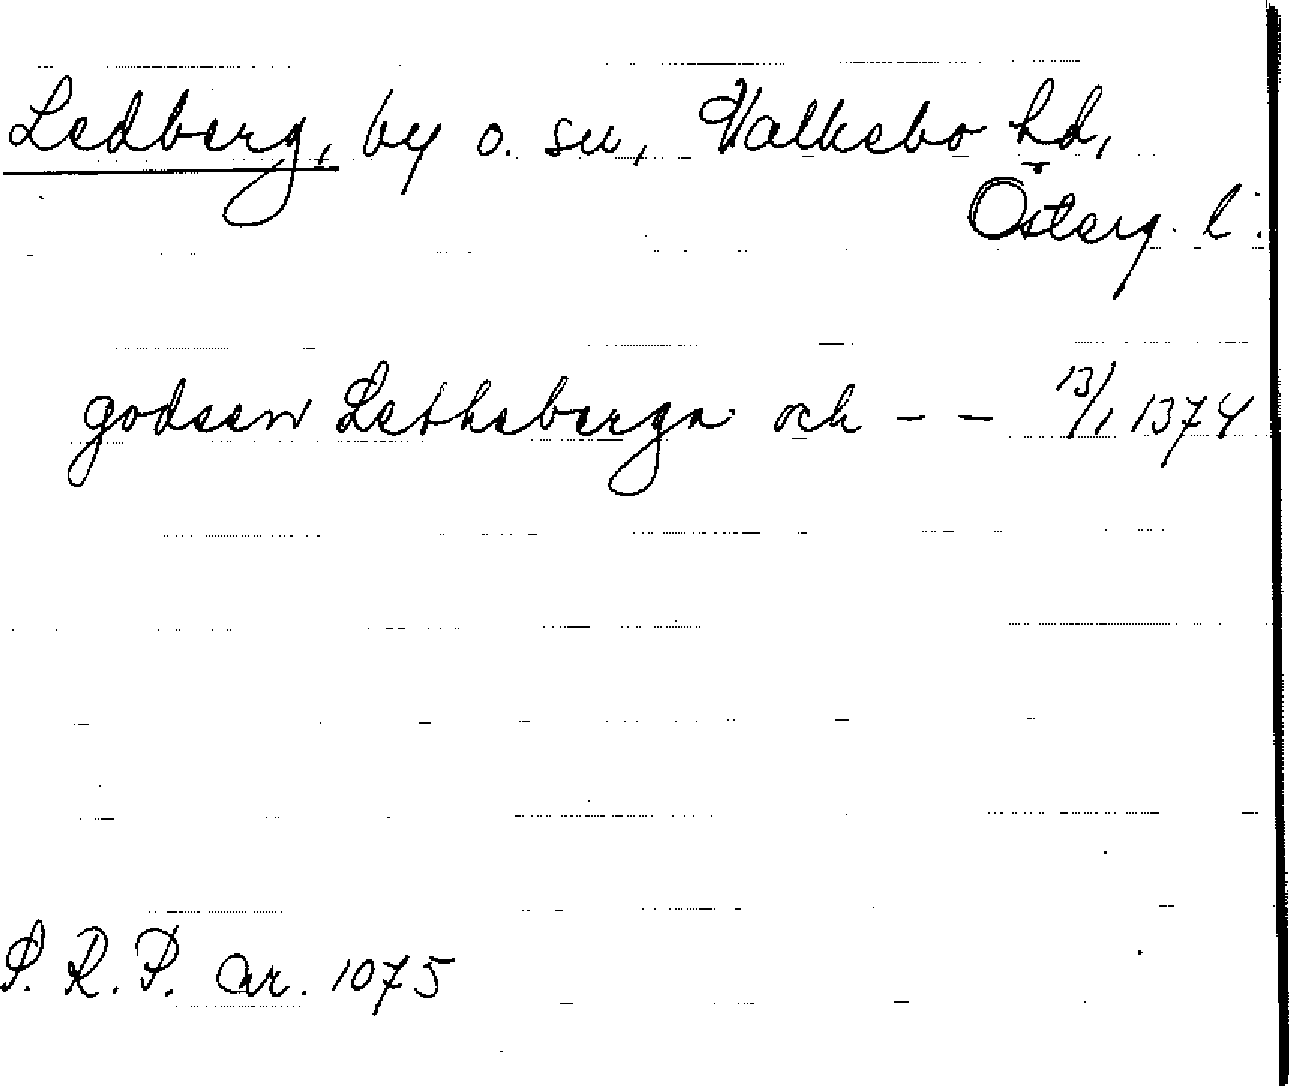 Ledberg, by o. sn, Valkebo hd,
Österg. l.
godsen Lethaberga och - - 13/1 1374
S. R. P. nr. 1075